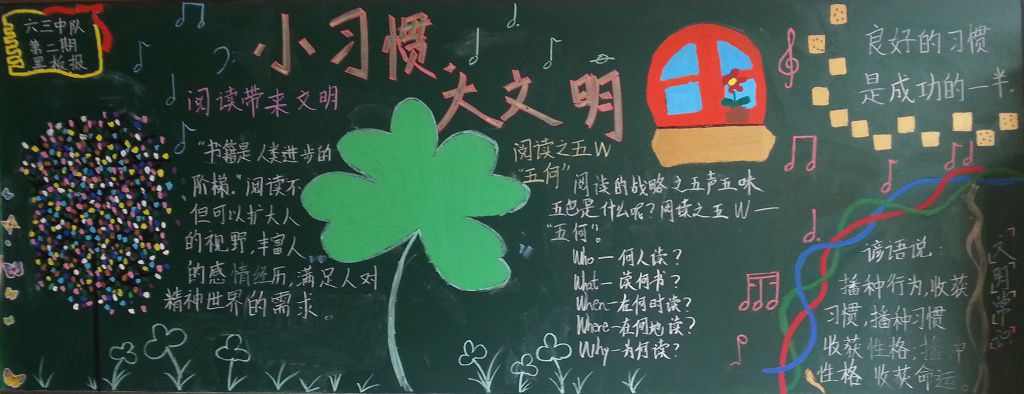 六三中队
第二期
黑板报
小习惯
大文明
阅读带来文明
“书籍是人类进步的
阶梯。”阅读不
但可以扩大人
的视野，丰富人
的感情经历，满足人对
精神世界的需求。
阅读之五W
“五何”
阅读的战略之五声五味
五色是什么呢？阅读之五W—
“五何”。
Who—何人读？
What—读何书？
When—在何时读？
Where—在何地读？
Why—为何读？
良好的习惯
是成功的一半.
谚语说：
播种行为，收获
习惯，播种习惯
收获性格，播种
性格 收获命运。
「文明常识」